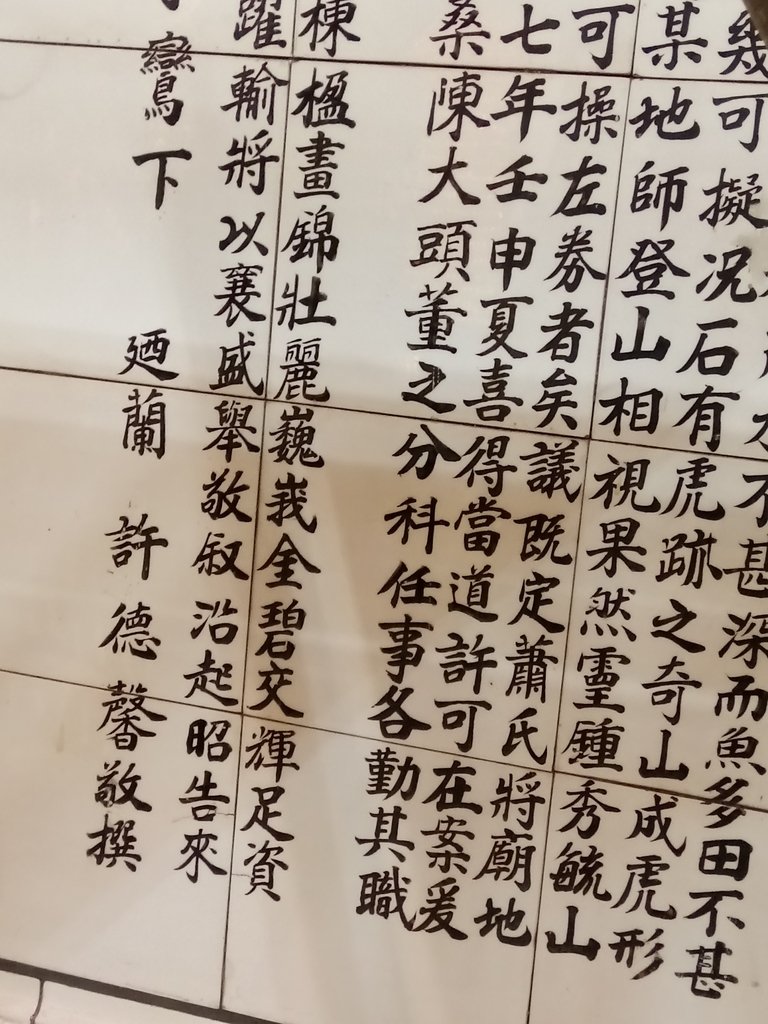 幾可擬况石有虎跡之奇山成虎形
不甚深而魚多田不甚
某地師登山相視果然靈鍾秀毓山
可操左券者矣議既定蕭氏將廟地
七年壬申夏喜得當道許可在案爰
桑陳大頭董之分科任事各勤其職
棟楹畫錦壯麗巍峩金碧交輝足資
躍輸將以襄盛舉敬叙沿起昭告來
鸞下
廼蘭 許德馨敬撰